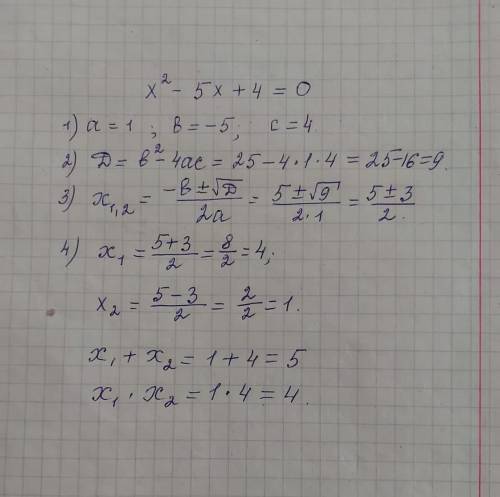 x² - 5x + 4 = 0
1) a = 1 ; b = -5; c = 4
2) D = b² - 4ac = 25 - 4·1·4 = 25-16=9.
3) x₁,₂ = (-b ± √D)/2a = (5 ± √9)/(2·1) = (5 ± 3)/2.
4) x₁ = (5+3)/2 = 8/2 = 4;
x₂ = (5-3)/2 = 2/2 = 1.
x₁ + x₂ = 1 + 4 = 5
x₁ · x₂ = 1 · 4 = 4.